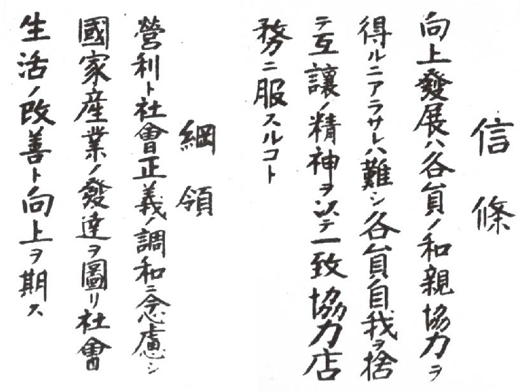 信條
向上發展ハ各員ノ和親協力ヲ
得ルニアラサレハ難シ各員自我ヲ捨
テ互讓ノ精神ヲ以テ一致協力店
務ニ服スルコト
綱領
營利ト社會正義ノ調和ニ念慮シ
國家産業ノ發達ヲ圖リ社會
生活ノ改善ト向上ヲ期ス